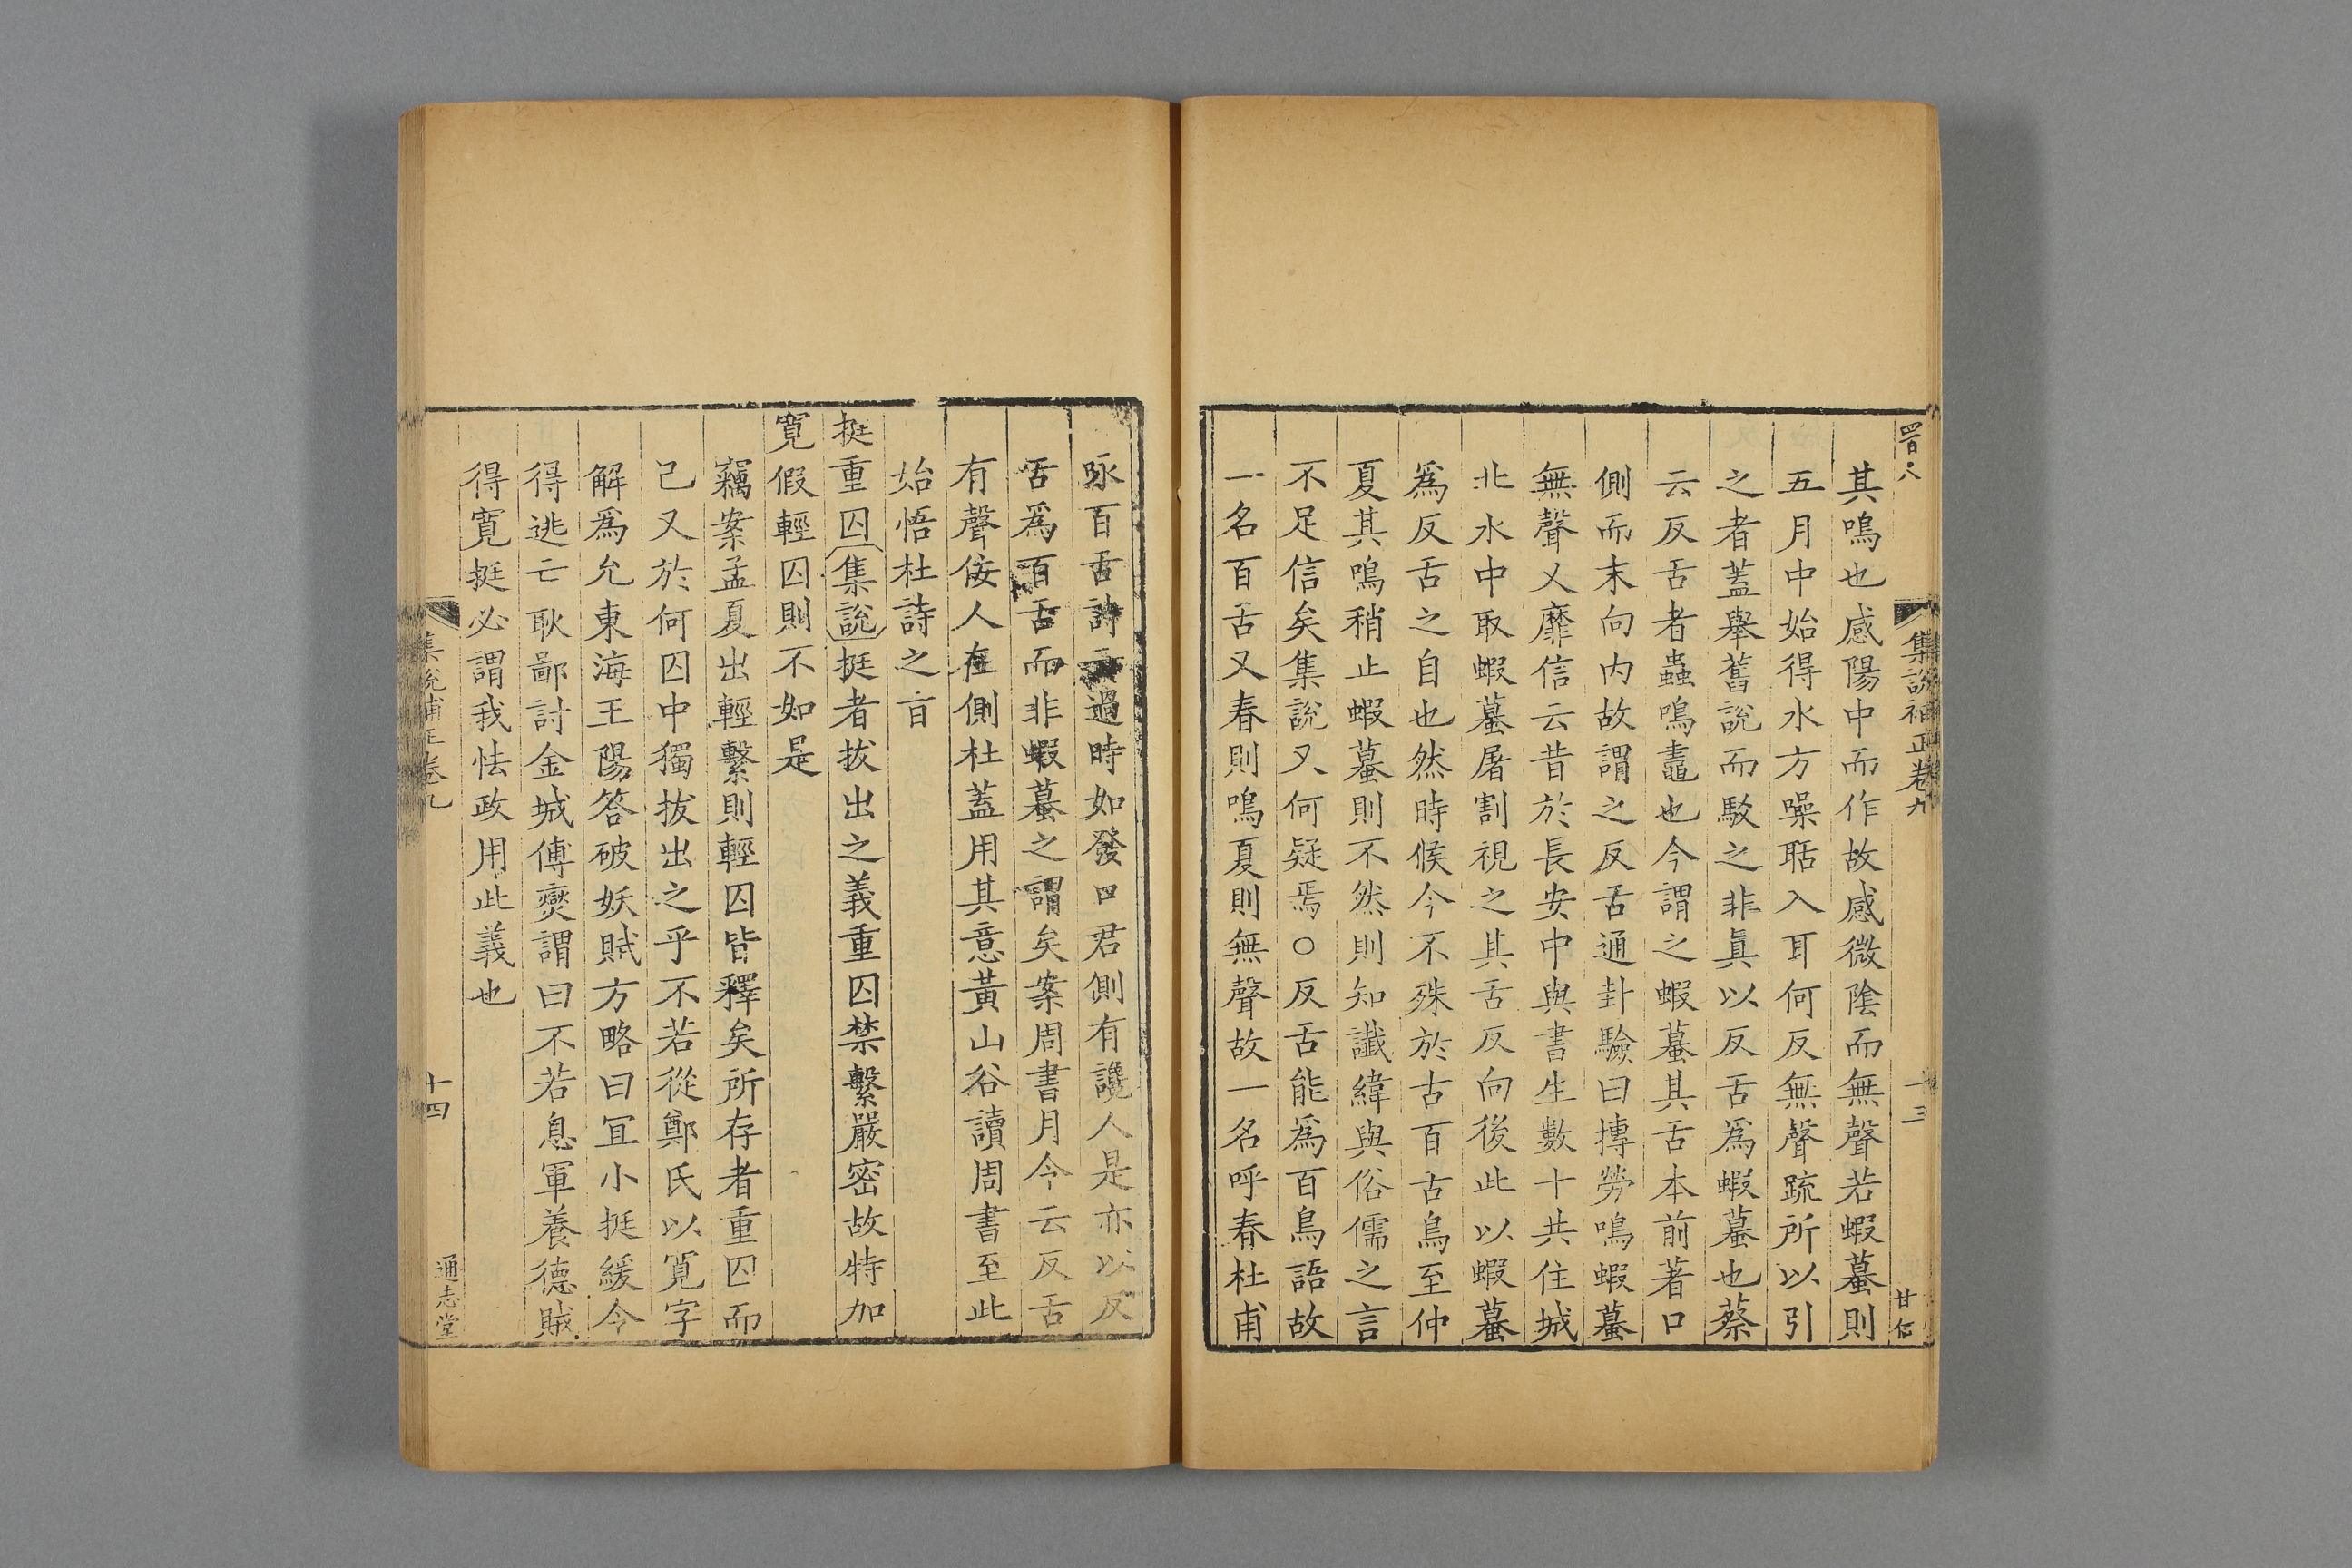 四百八
集說補正卷九
十三
甘信
其鳴也感陽中而作故感微陰而無聲若蝦蟇則
五月中始得水方噪聒入耳何反無聲疏所以引
之者蓋舉舊說而駁之非眞以反舌爲蝦蟇也蔡
云反舌者蟲鳴鼃也今謂之蝦蟇其舌本前著口
側而末向內故謂之反舌通卦驗曰摶勞鳴蝦蟇
無聲又靡信云昔於長安中與書生數十共住城
北水中取蝦蟇屠割視之其舌反向後此以蝦蟇
爲反舌之自也然時候今不殊於古百古鳥至仲
夏其鳴稍止蝦蟇則不然則知讖緯與俗儒之言
不足信矣集說又何疑焉○反舌能爲百鳥語故
一名百舌又春則鳴夏則無聲故一名呼春杜甫
咏百舌詩過時如發口君側有讒人是亦以反
舌爲百舌而非蝦蟇之謂矣案周書月令云反舌
有聲佞人在側杜蓋用其意黃山谷讀周書至此
始悟杜詩之㫖
挺重囚集說挺者拔出之義重囚禁繫嚴密故特加
寬假輕囚則不如是
竊案孟夏出輕繫則輕囚皆釋矣所存者重囚而
己又於何囚中獨拔出之乎不若從鄭氏以寬字
解爲允東海王陽答破妖賊方略曰宜小挺緩令
得逃亡耿鄙討金城傅爕謂曰不若息軍養德賊
得寬挺必謂我怯政用此義也
集說補正卷九
十四
通志堂